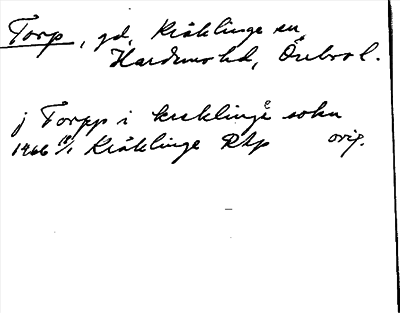 Torp, gd, Kräklinge sn,
Hardemo hd, Örebro l.
j Torpp i kreklinge sokn
1466 18/1 Kräklinge RAp orig.